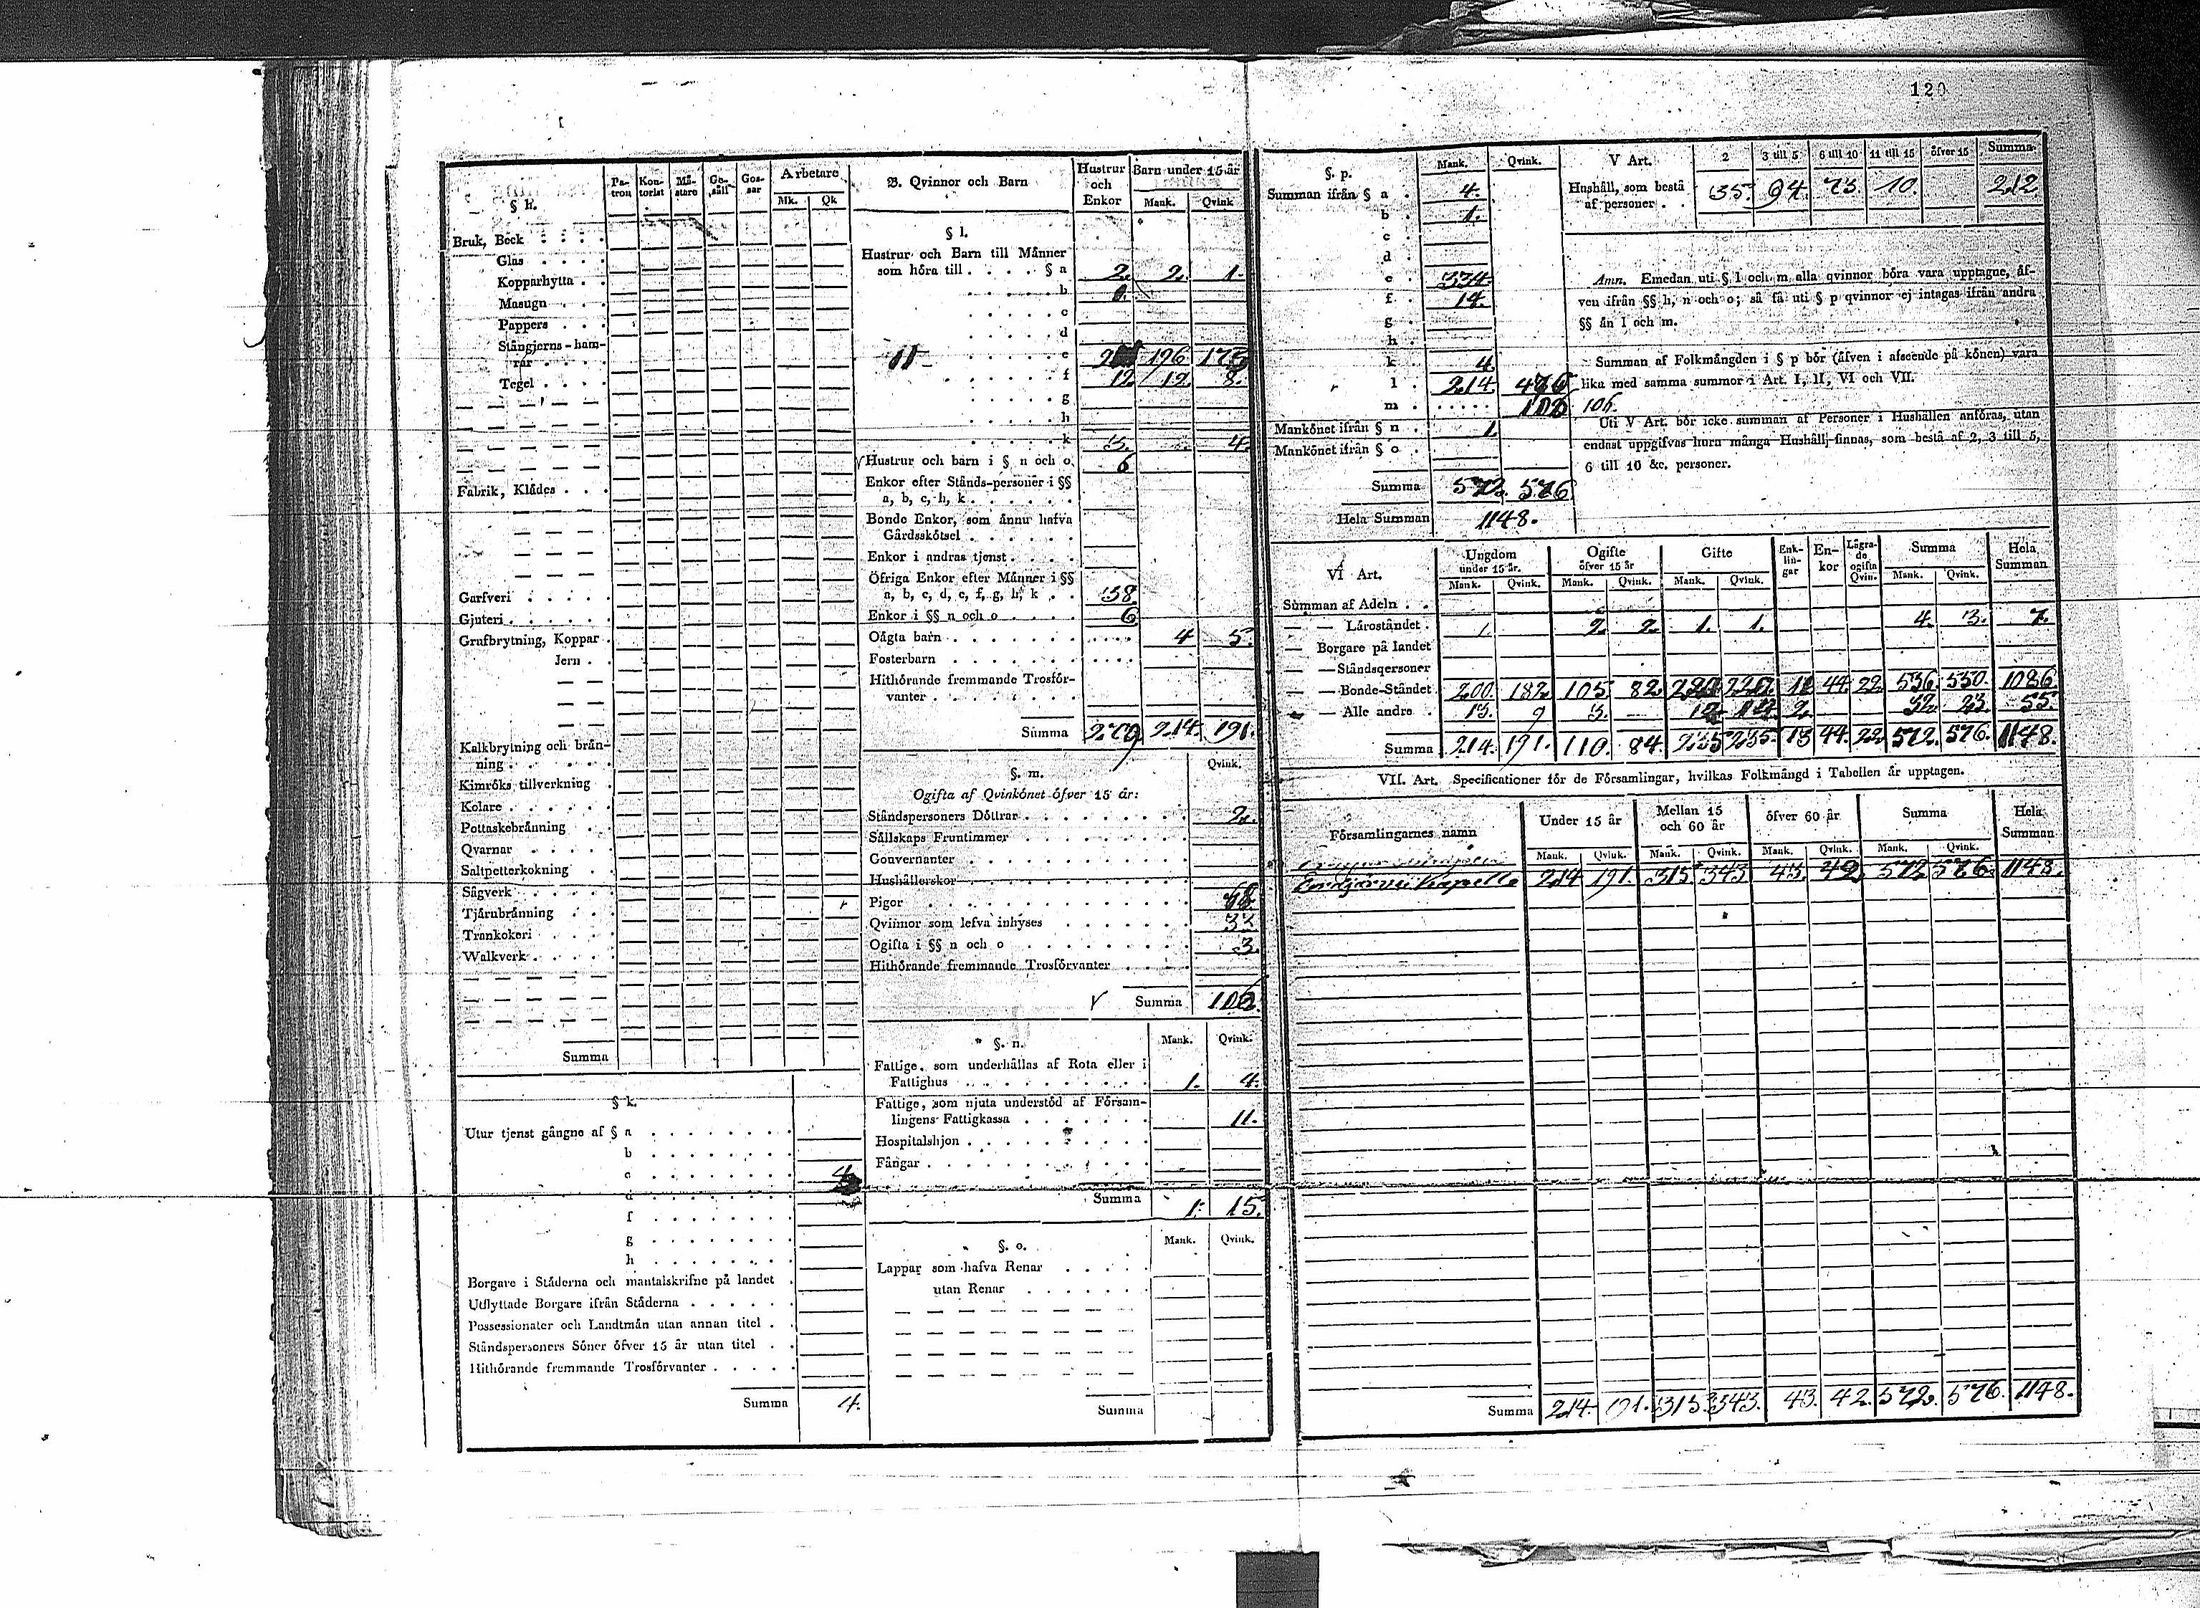 120
§ h.
Pa-tron Kon-torist Mä-stare Ge-säll Gos-sar Arbetare
Mk. Qk
Bruk, Beck
Glas
Kopparhytta
Masugn
Pappers
Stångjerns-ham-
rar
Tegel
Fabrik, Klädes
Garfveri
Gjuteri
Grufbrytning, Koppar
Jern
Kalkbrytning och brän-
ning
Kimröks tillverkning
Kolare
Pottaskebränning
Qvarnar
Saltpetterkokning
Sågverk
Tjärubränning
Trankokeri
Walkverk
Summa
§ k.
Utur tjenst gångne af § a
b
c 4
d
f
g
h
Borgare i Städerna och mantalskrifne på landet
Utflyttade Borgare ifrån Städerna
Possessionater och Landtmän utan annan titel
Ståndspersoners Söner öfver 15 år utan titel
Hithörande fremmande Trosförvanter
Summa 4.
B. Qvinnor och Barn Hustrur och Enkor Barn under 15 år
Mank. Qvink
§ l.
Hustrur och Barn till Männer
som höra till § a 2. 2. 1.
b
c
d
e 196
f 12. 12. 8.
g
h
k 3. 4.
Hustrur och barn i § n och o. 6
Enkor efter Stånds-personer i §§
a, b, c, h, k
Bonde Enkor, som ännu hafva
Gårdsskötsel
Enkor i andras tjenst
Öfriga Enkor efter Männer i §§
a, b, c, d, e, f, g, h, k 38
Enkor i §§ n och o 6
Oägta barn 4 5.
Fosterbarn
Hithörande fremmande Trosför-
vanter
Summa 279 214. 191.
§. m. Qvink.
Ogifta af Qvinkönet öfver 15 år:
Ståndspersoners Döttrar 2.
Sällskaps Fruntimmer
Gouvernanter
Hushållerskor
Pigor 68
Qvinnor som lefva inhyses 33
Ogifta i §§ n och o 3.
Hithörande fremmande Trosförvanter
Summa 106.
§. n. Mank. Qvink.
Fattige, som underhållas af Rota eller i
Fattighus 1. 4.
Fattige, som njuta understöd af Försam-
lingens Fattigkassa 11.
Hospitalshjon
Fångar
Summa 1. 15.
§. o. Mank. Qvink.
Lappar som hafva Renar
utan Renar
Summa
§. p. Mank. Qvink.
Summan ifrån § a 4.
b 1.
c
d
e 334.
f 14.
g
h
k 4.
l 214. 470
m 106 106.
Mankönet ifrån § n 1
Mankönet ifrån § o
Summa 572. 576.
Hela Summan 1148.
V Art. 2 3 till 5 6 till 10 11 till 15 öfver 15 Summa
Hushåll, som bestå
af personer 35. 94. 73. 10. 212
Anm. Emedan uti § l och m alla qvinnor böra vara upptagne, äf-
ven ifrån §§ h, n och o; så få uti § p qvinnor ej intagas ifrån andra
§§ än l och m.
Summan af Folkmängden i § p bör (äfven i afseende på könen) vara
lika med samma summor i Art. I, II, VI och VII.
Uti V Art. bör icke summan af Personer i Hushållen anföras, utan
endast uppgifvas huru många Hushåll finnas, som bestå af 2, 3 till 5,
6 till 10 &c. personer.
VI Art. Ungdom under 15 år. Ogifte öfver 15 år Gifte Enk-lin-gar En-kor Lägra-de ogifta Qvin. Summa Hela Summan
Mank. Qvink. Mank. Qvink. Mank. Qvink. Mank. Qvink.
Summan af Adeln
— — Läroståndet 1. 2. 2. 1. 1. 4. 3. 7.
— Borgare på landet
— — Ståndspersoner
— — Bonde-Ståndet 200. 182. 105. 82. 44. 22 536. 550. 1086.
— — Alle andre 13. 9 3. — 2. 32. 23. 55.
Summa 214. 191. 110. 84. 235 235. 13 44. 22. 572. 576. 1148.
VII. Art. Specificationer för de Församlingar, hvilkas Folkmängd i Tabellen är upptagen.
Församlingarnes namn Under 15 år Mellan 15 och 60 år öfver 60 år Summa Hela Summan
Mank. Qvink. Mank. Qvink. Mank. Qvink. Mank. Qvink.
214 191. 315. 343 43. 42 572 576. 1148.
Summa 214. 191. 315. 343. 43. 42. 572. 576. 1148.